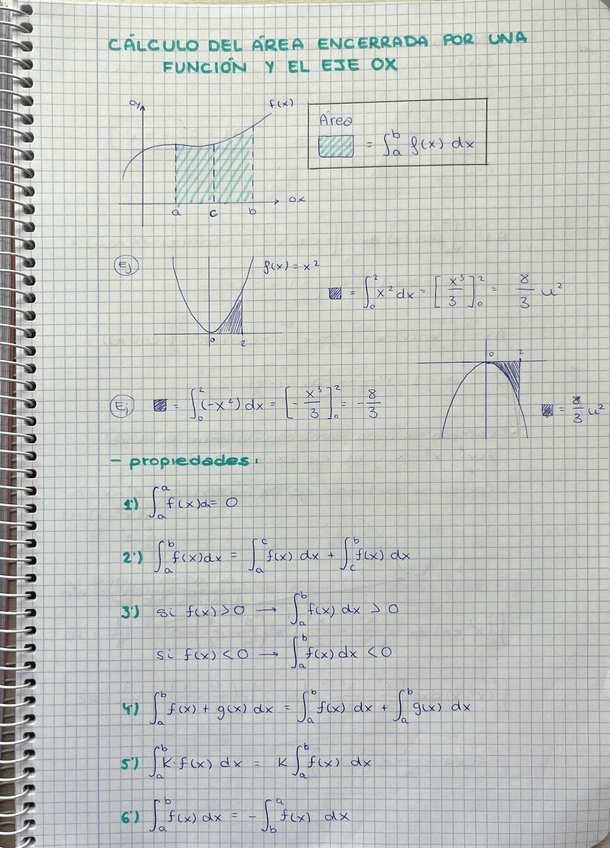 CÁLCULO DEL ÁREA ENCERRADA POR UNA
FUNCIÓN Y EL EJE OX
oy
f(x)
a c b
ox
Área
= ∫_a^b f(x) dx
Ej
f(x) = x²
0 2
= ∫_0^2 x² dx = [x³/3]_0^2 = 8/3 u²
Ej
= ∫_0^2 (-x²) dx = [-x³/3]_0^2 = -8/3
0 2
= 8/3 u²
- propiedades:
1º) ∫_a^a f(x) dx = 0
2º) ∫_a^b f(x) dx = ∫_a^c f(x) dx + ∫_c^b f(x) dx
3º) si f(x) > 0 → ∫_a^b f(x) dx > 0
si f(x) < 0 → ∫_a^b f(x) dx < 0
4º) ∫_a^b f(x) + g(x) dx = ∫_a^b f(x) dx + ∫_a^b g(x) dx
5º) ∫_a^b K·f(x) dx = K ∫_a^b f(x) dx
6º) ∫_a^b f(x) dx = - ∫_b^a f(x) dx